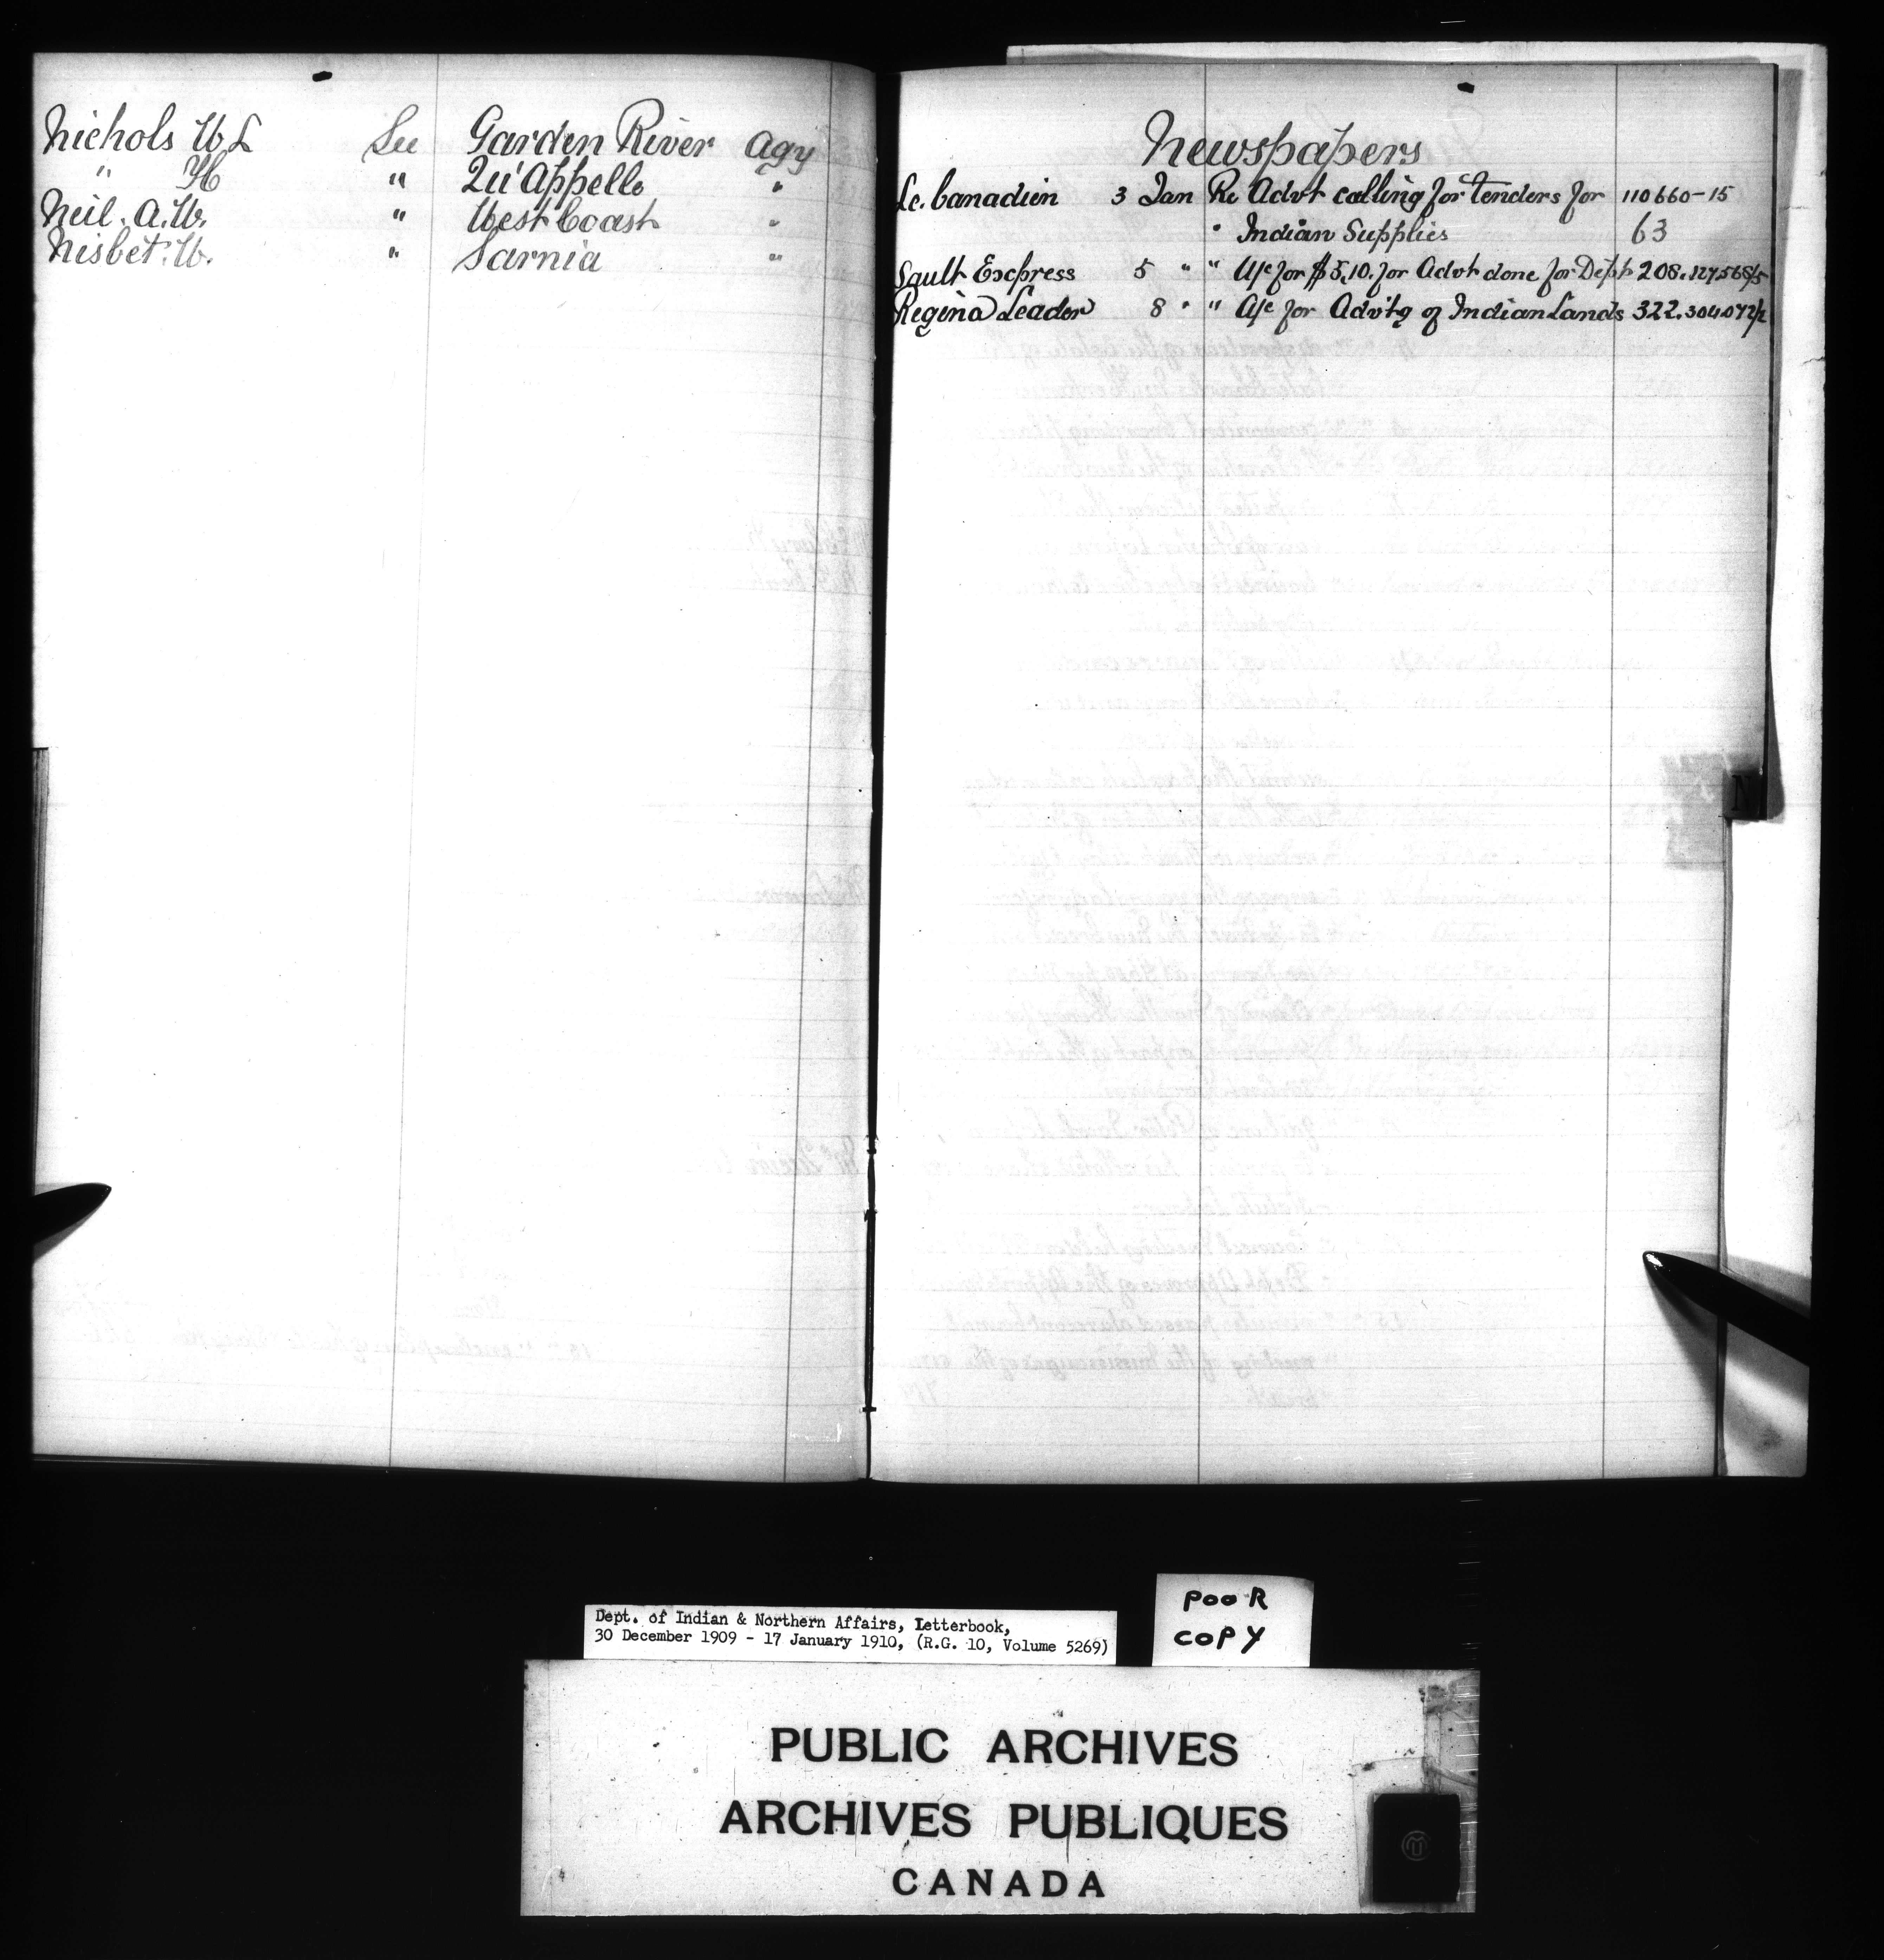 Nichols W L See Garden River Agy
" H " Qu'Appelle "
Neil. A. W. " West Coast "
Nisbet. W. " Sarnia "
Newspapers
Le. Canadien 3 Jan Re Advt calling for tenders for 110660-15
" Indian Supplies 63
Sault Express 5 " " A/c for $5.10. for Advt done for Dept 208. 127,568/5
Regina Leader 8 " " A/c for Advt'g of Indian Lands 322. 304072/2
N
Dept. of Indian & Northern Affairs, Letterbook,
30 December 1909 - 17 January 1910, (R.G. 10, Volume 5269)
POOR
COPY
PUBLIC ARCHIVES
ARCHIVES PUBLIQUES
CANADA